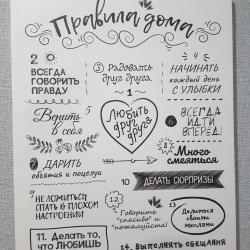 Правила дома
2
ВСЕГДА
ГОВОРИТЬ
ПРАВДУ
3 Радовать
друг друга
1
4
НАЧИНАТЬ
каждый день
С УЛЫБКИ
5
Верить
в себя
Любить
друг
друга
6 ВСЕГДА
ИДТИ
ВПЕРЁД!
7 ДАРИТЬ
объятия и поцелуи
8 Много
смеяться
10
ДЕЛАТЬ СЮРПРИЗЫ
9 НЕ ЛОЖИТЬСЯ
СПАТЬ В ПЛОХОМ
НАСТРОЕНИИ
12
Говорить
"спасибо" и
"пожалуйста!"
13
Делиться
своими
мыслями
11. Делать то,
что ЛЮБИШЬ
14. ВЫПОЛНЯТЬ ОБЕЩАНИЯ